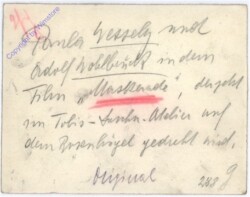 Paula Wessely und
Adolf Wohlbrück in dem
Film „Maskerade", der jetzt
im Tobis-Sascha-Atelier auf
dem Rosenhügel gedreht wird.
Original
288